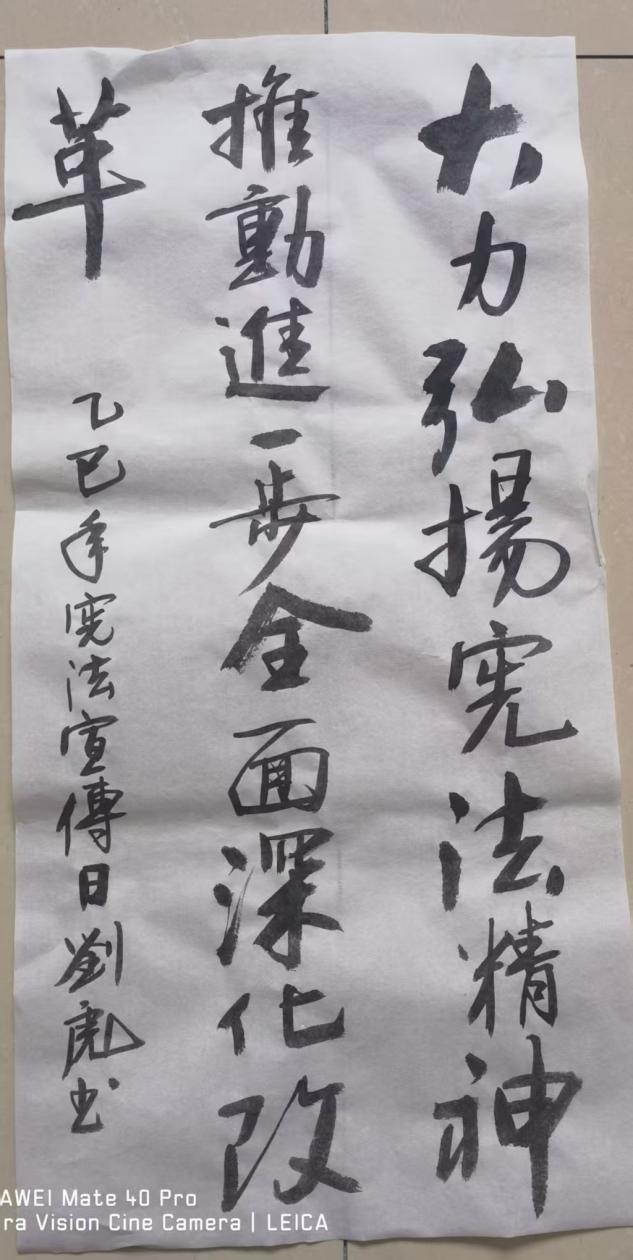 大力弘揚憲法精神
推動進一步全面深化改
革
乙巳年憲法宣傳日劉彪書
AWEI Mate 40 Pro
ra Vision Cine Camera | LEICA